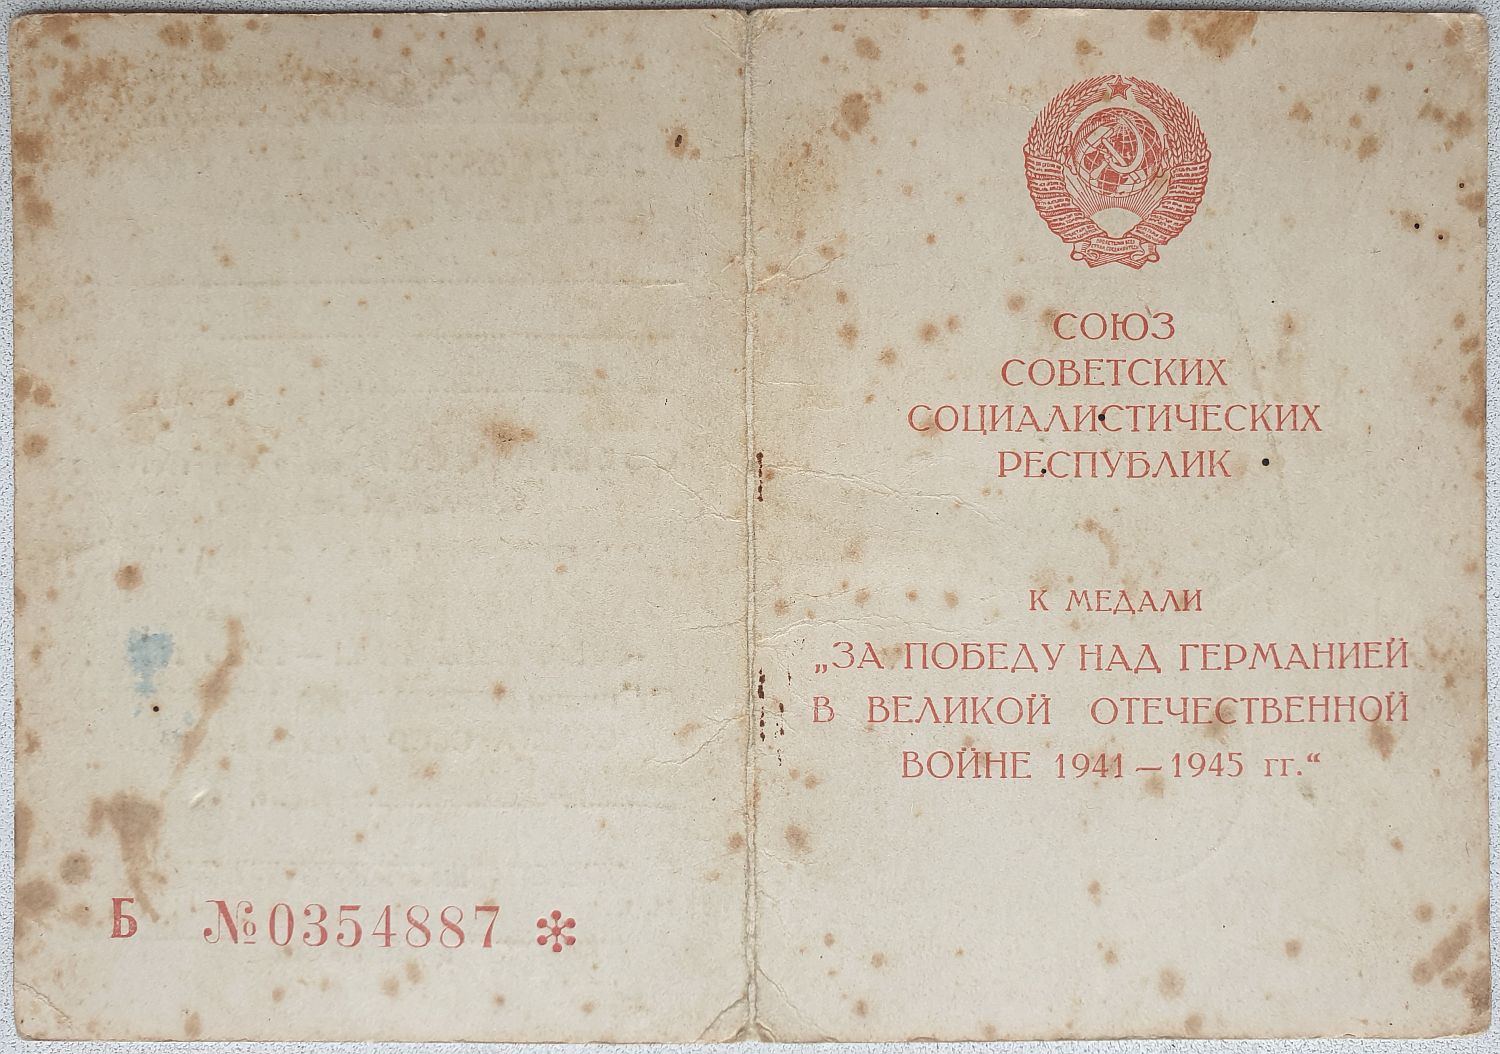 Б №0354887
СОЮЗ
СОВЕТСКИХ
СОЦИАЛИСТИЧЕСКИХ
РЕСПУБЛИК
К МЕДАЛИ
„ЗА ПОБЕДУ НАД ГЕРМАНИЕЙ
В ВЕЛИКОЙ ОТЕЧЕСТВЕННОЙ
ВОЙНЕ 1941—1945 гг.“